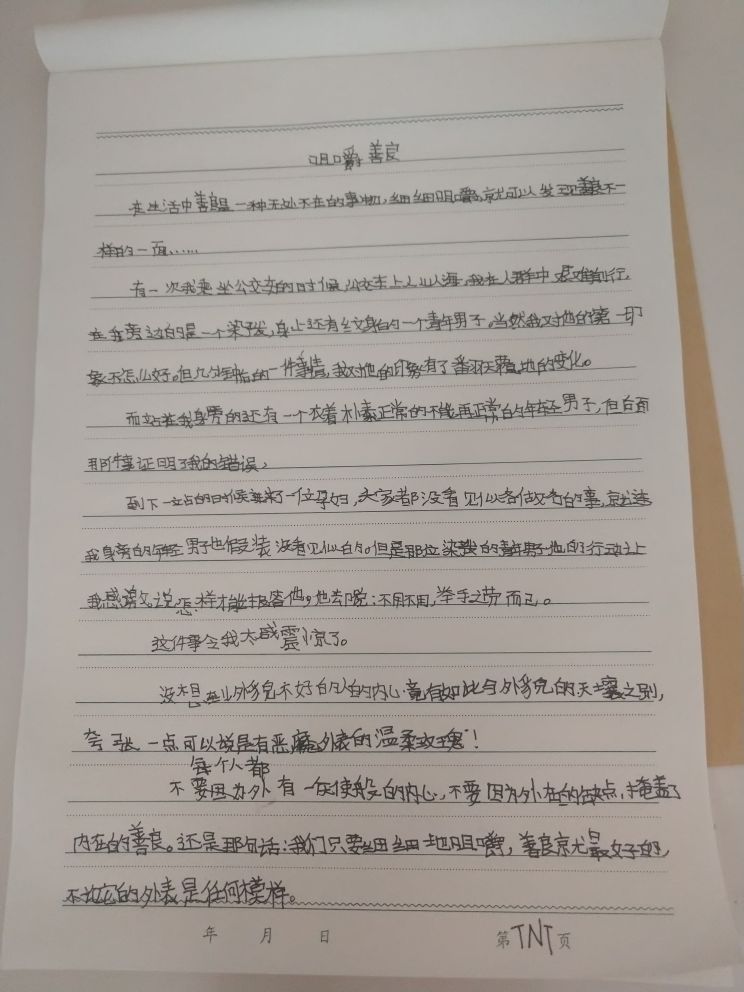 咀嚼善良
在生活中善良是一种无处不在的事物,细细咀嚼,就可以发现善良不一
样的一面……
有一次我乘坐公交车的时候,公交车上人山人海,我在人群中艰难前行,
在我旁边的是一个染发,身上还有纹身的一个青年男子。当然我对他的第一印
象不怎么好。但几分钟后的一件事情,我对他的印象有了翻天覆地的变化。
而站在我身旁的还有一个衣着朴素正常的不能再正常的年轻男子,但后面
那件事证明了我的错误。
到下一站的时候来了一位孕妇,大家都没看见似各做各的事,就连
我身旁的年轻男子也假装没看见似的。但是那位染发的青年男子他的行动让
我感 说怎样才能报答他,他却说:不用不用,举手之劳而已。
这件事令我大感震惊了。
没想到外貌不好的人的内心竟有如此与外貌的天壤之别,
夸张一点可以说是有恶魔外表的温柔玫瑰!
每个人都
不要因为外有一天使般的内心,不要因为外在的缺点,掩盖了
内在的善良。还是那句话:我们只要细细地咀嚼,善良就是最好的,
不论它的外表是任何模样。
年 月 日 第TNT页